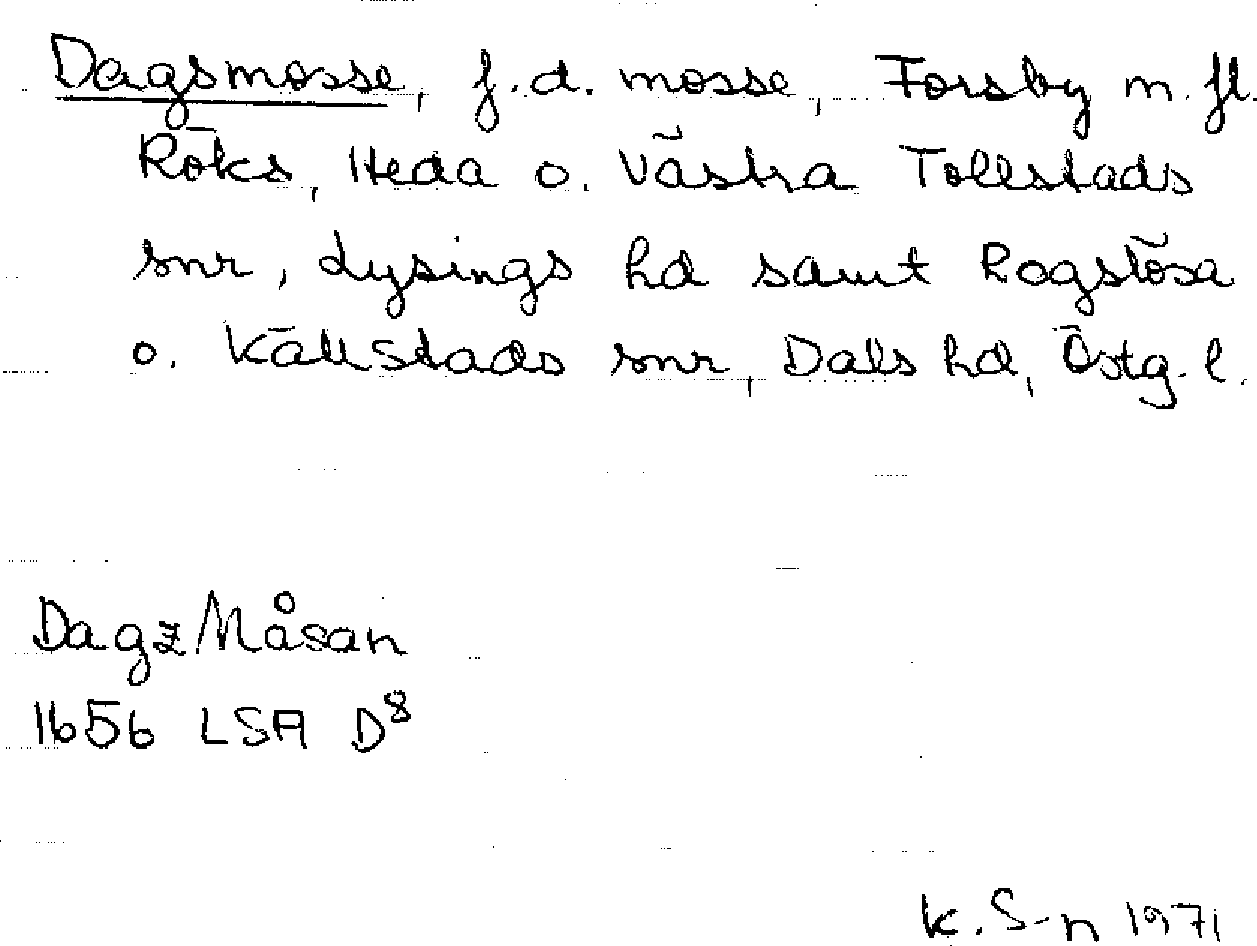 Dagsmosse, f.d. mosse, Forsby m. fl.
Röks, Heda o. Västra Tollstads
snr, Lysings hd samt Rogslösa
o. Källstads snr, Dals hd, Östg. l.
Dagz Måsan
1656 LSA D8
K. S-n 1971